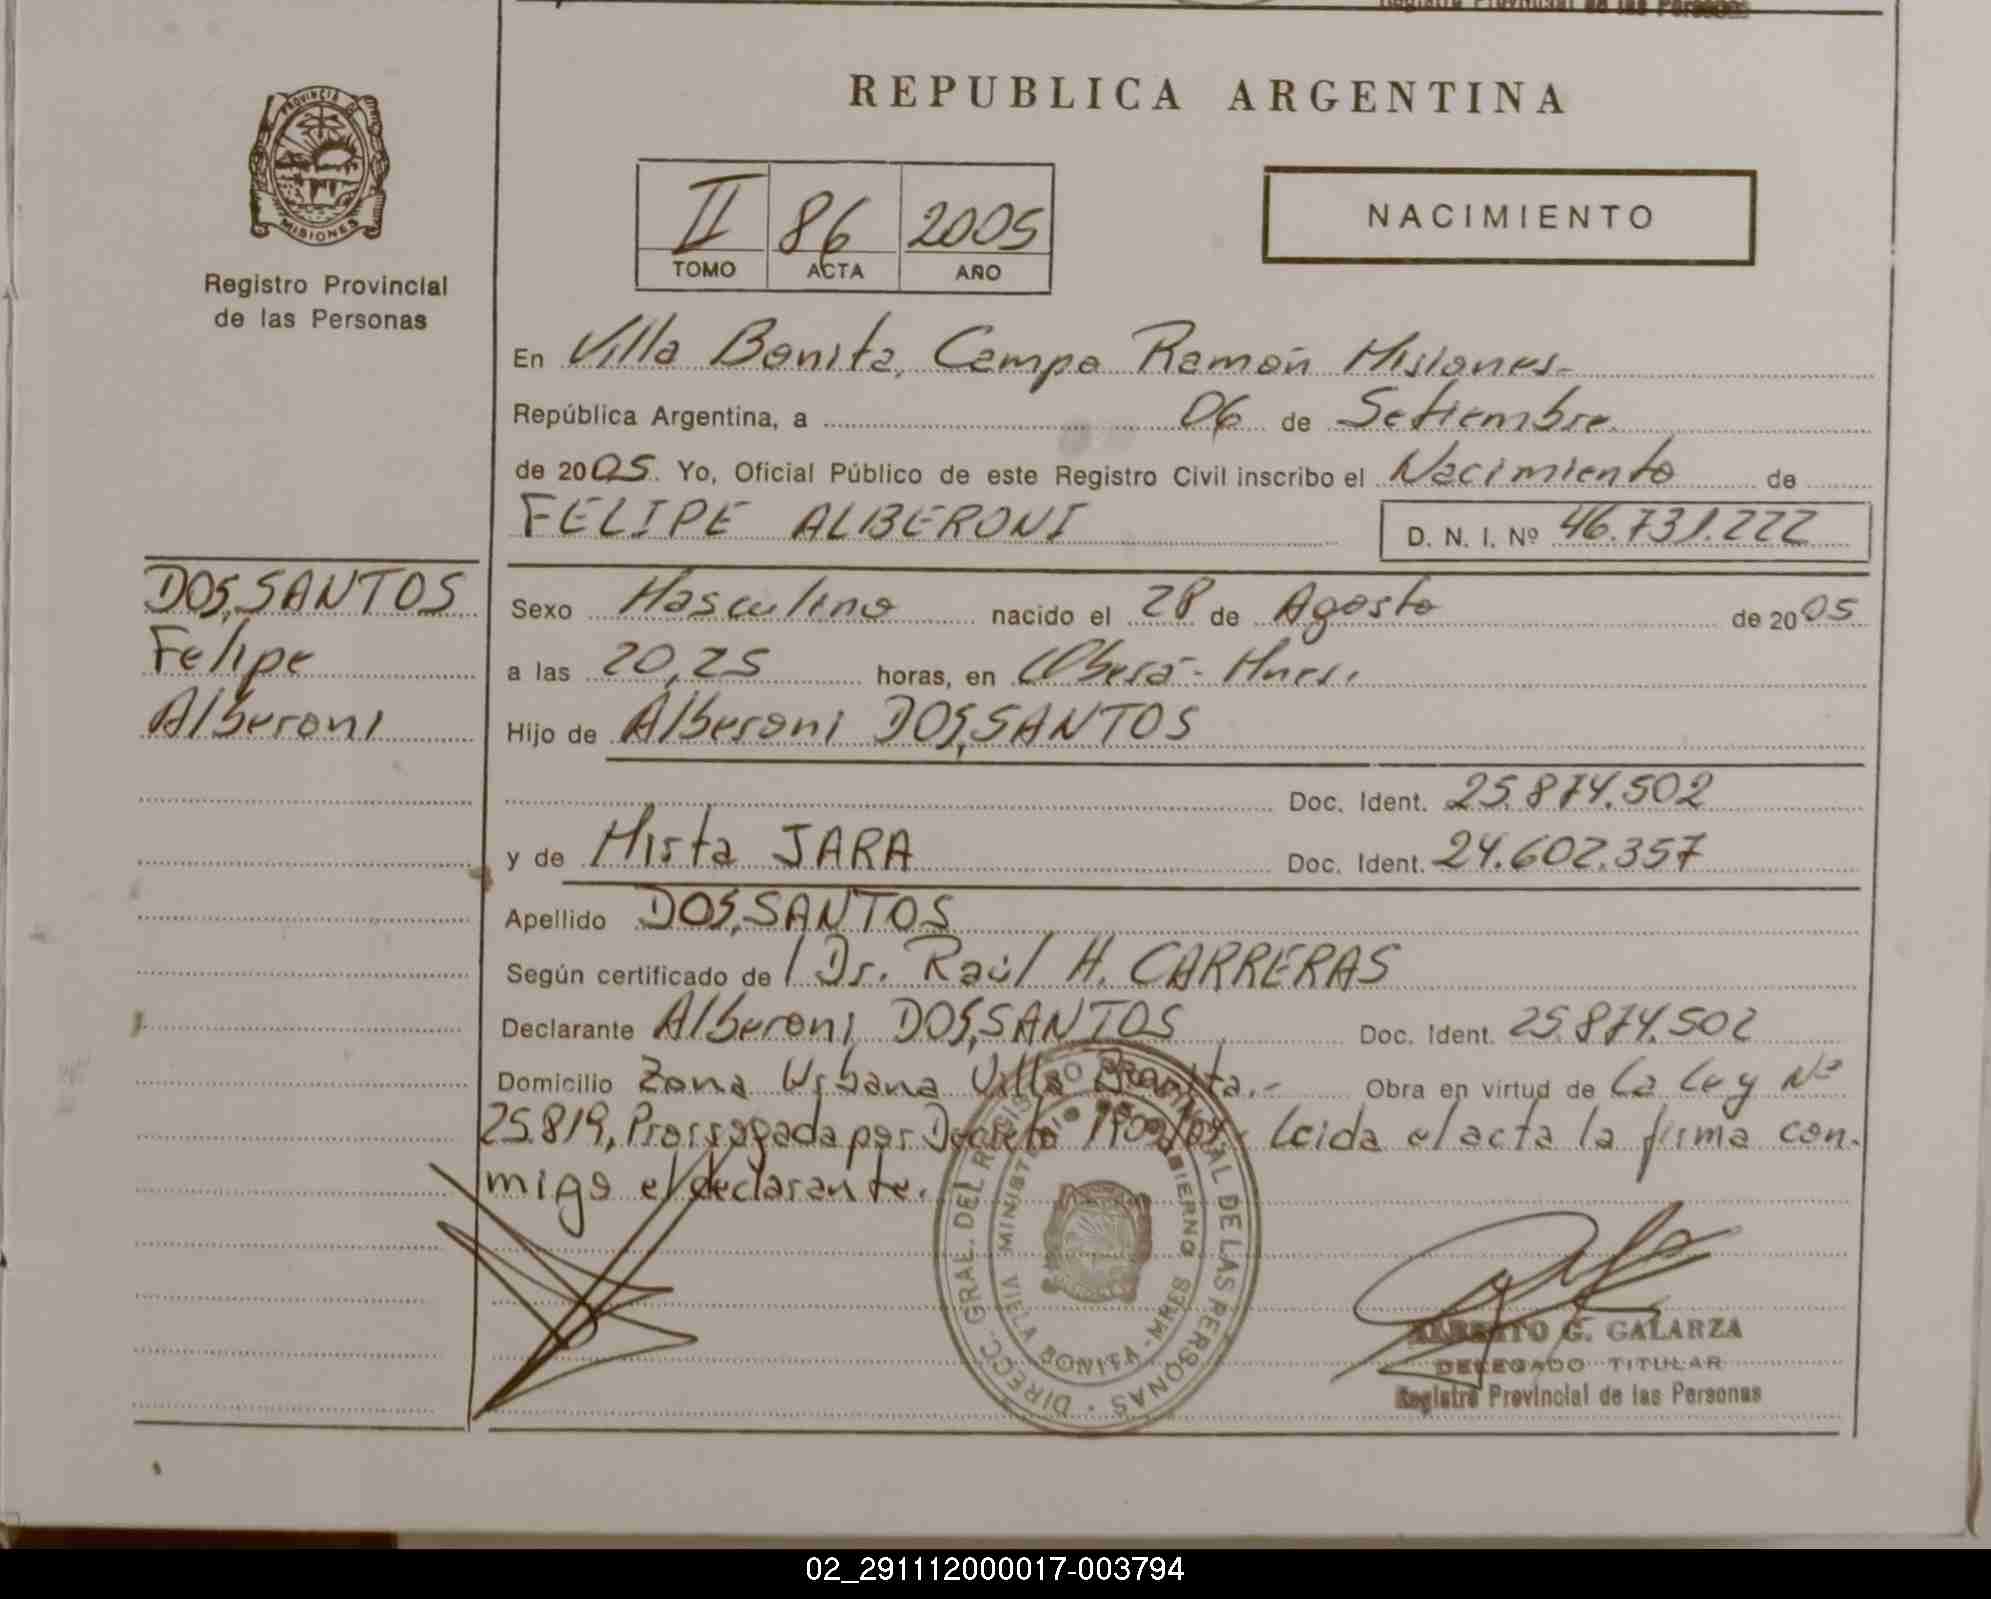 PROVINCIA DE
MISIONES
Registro Provincial
de las Personas
DOS,SANTOS
Felipe
Alberoni
Registro Provincial de las Personas
REPUBLICA ARGENTINA
II 86 2005
TOMO ACTA AÑO
NACIMIENTO
En Villa Bonita, Campo Ramón Misiones.-
República Argentina, a 06 de Setiembre.
de 2005. Yo, Oficial Público de este Registro Civil inscribo el Nacimiento de
FELIPE ALBERONI D. N. I. Nº 46.731.222
Sexo Masculino nacido el 28 de Agosto de 2005
a las 20,25 horas, en Oberá-
Hijo de Alberoni DOS,SANTOS
Doc. Ident. 25.874.502
y de Mirta JARA Doc. Ident. 24.602.357
Apellido DOS,SANTOS
Según certificado de Dr. Raúl H. CARRERAS
Declarante Alberoni DOS,SANTOS Doc. Ident. 25.874.502
Domicilio Zona Urbana Villa Bonita.- Obra en virtud de la Ley Nº
25.819, Prorrogada por Decreto Leida el acta la firma con-
migo el declarante.
DIRECC. GRAL. DEL REGISTRO PROVINCIAL DE LAS PERSONAS
MINISTERIO GOBIERNO
VIELA BONITA - MNES
ALBERTO G. GALARZA
DELEGADO TITULAR
Registro Provincial de las Personas
02_291112000017-003794